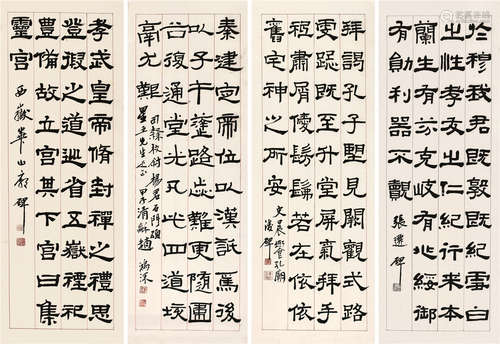 於穆我君既敦既純雪白
之性孝友之仁紀行来本
蘭生有芬克岐有兆綏御
有勛利器不覿
張遷碑
拜謁孔子望見闕觀式路
虔跽既至升堂屏氣拜手
祗肅屑僾髣髴若在依依
舊宅神之所安
史晨饗孔廟
後碑
秦建定帝位以漢詆焉後
以子午塗路歰難更隨圍
谷復通堂光凡此四道垓
鬲尤難
司隸校尉楊君石門頌
先生正 甲子
孝武皇帝脩封禪之禮思
登徦之道巡省五嶽禋祀
豊備故立宮其下宮曰集
靈宮
西嶽華山廟碑